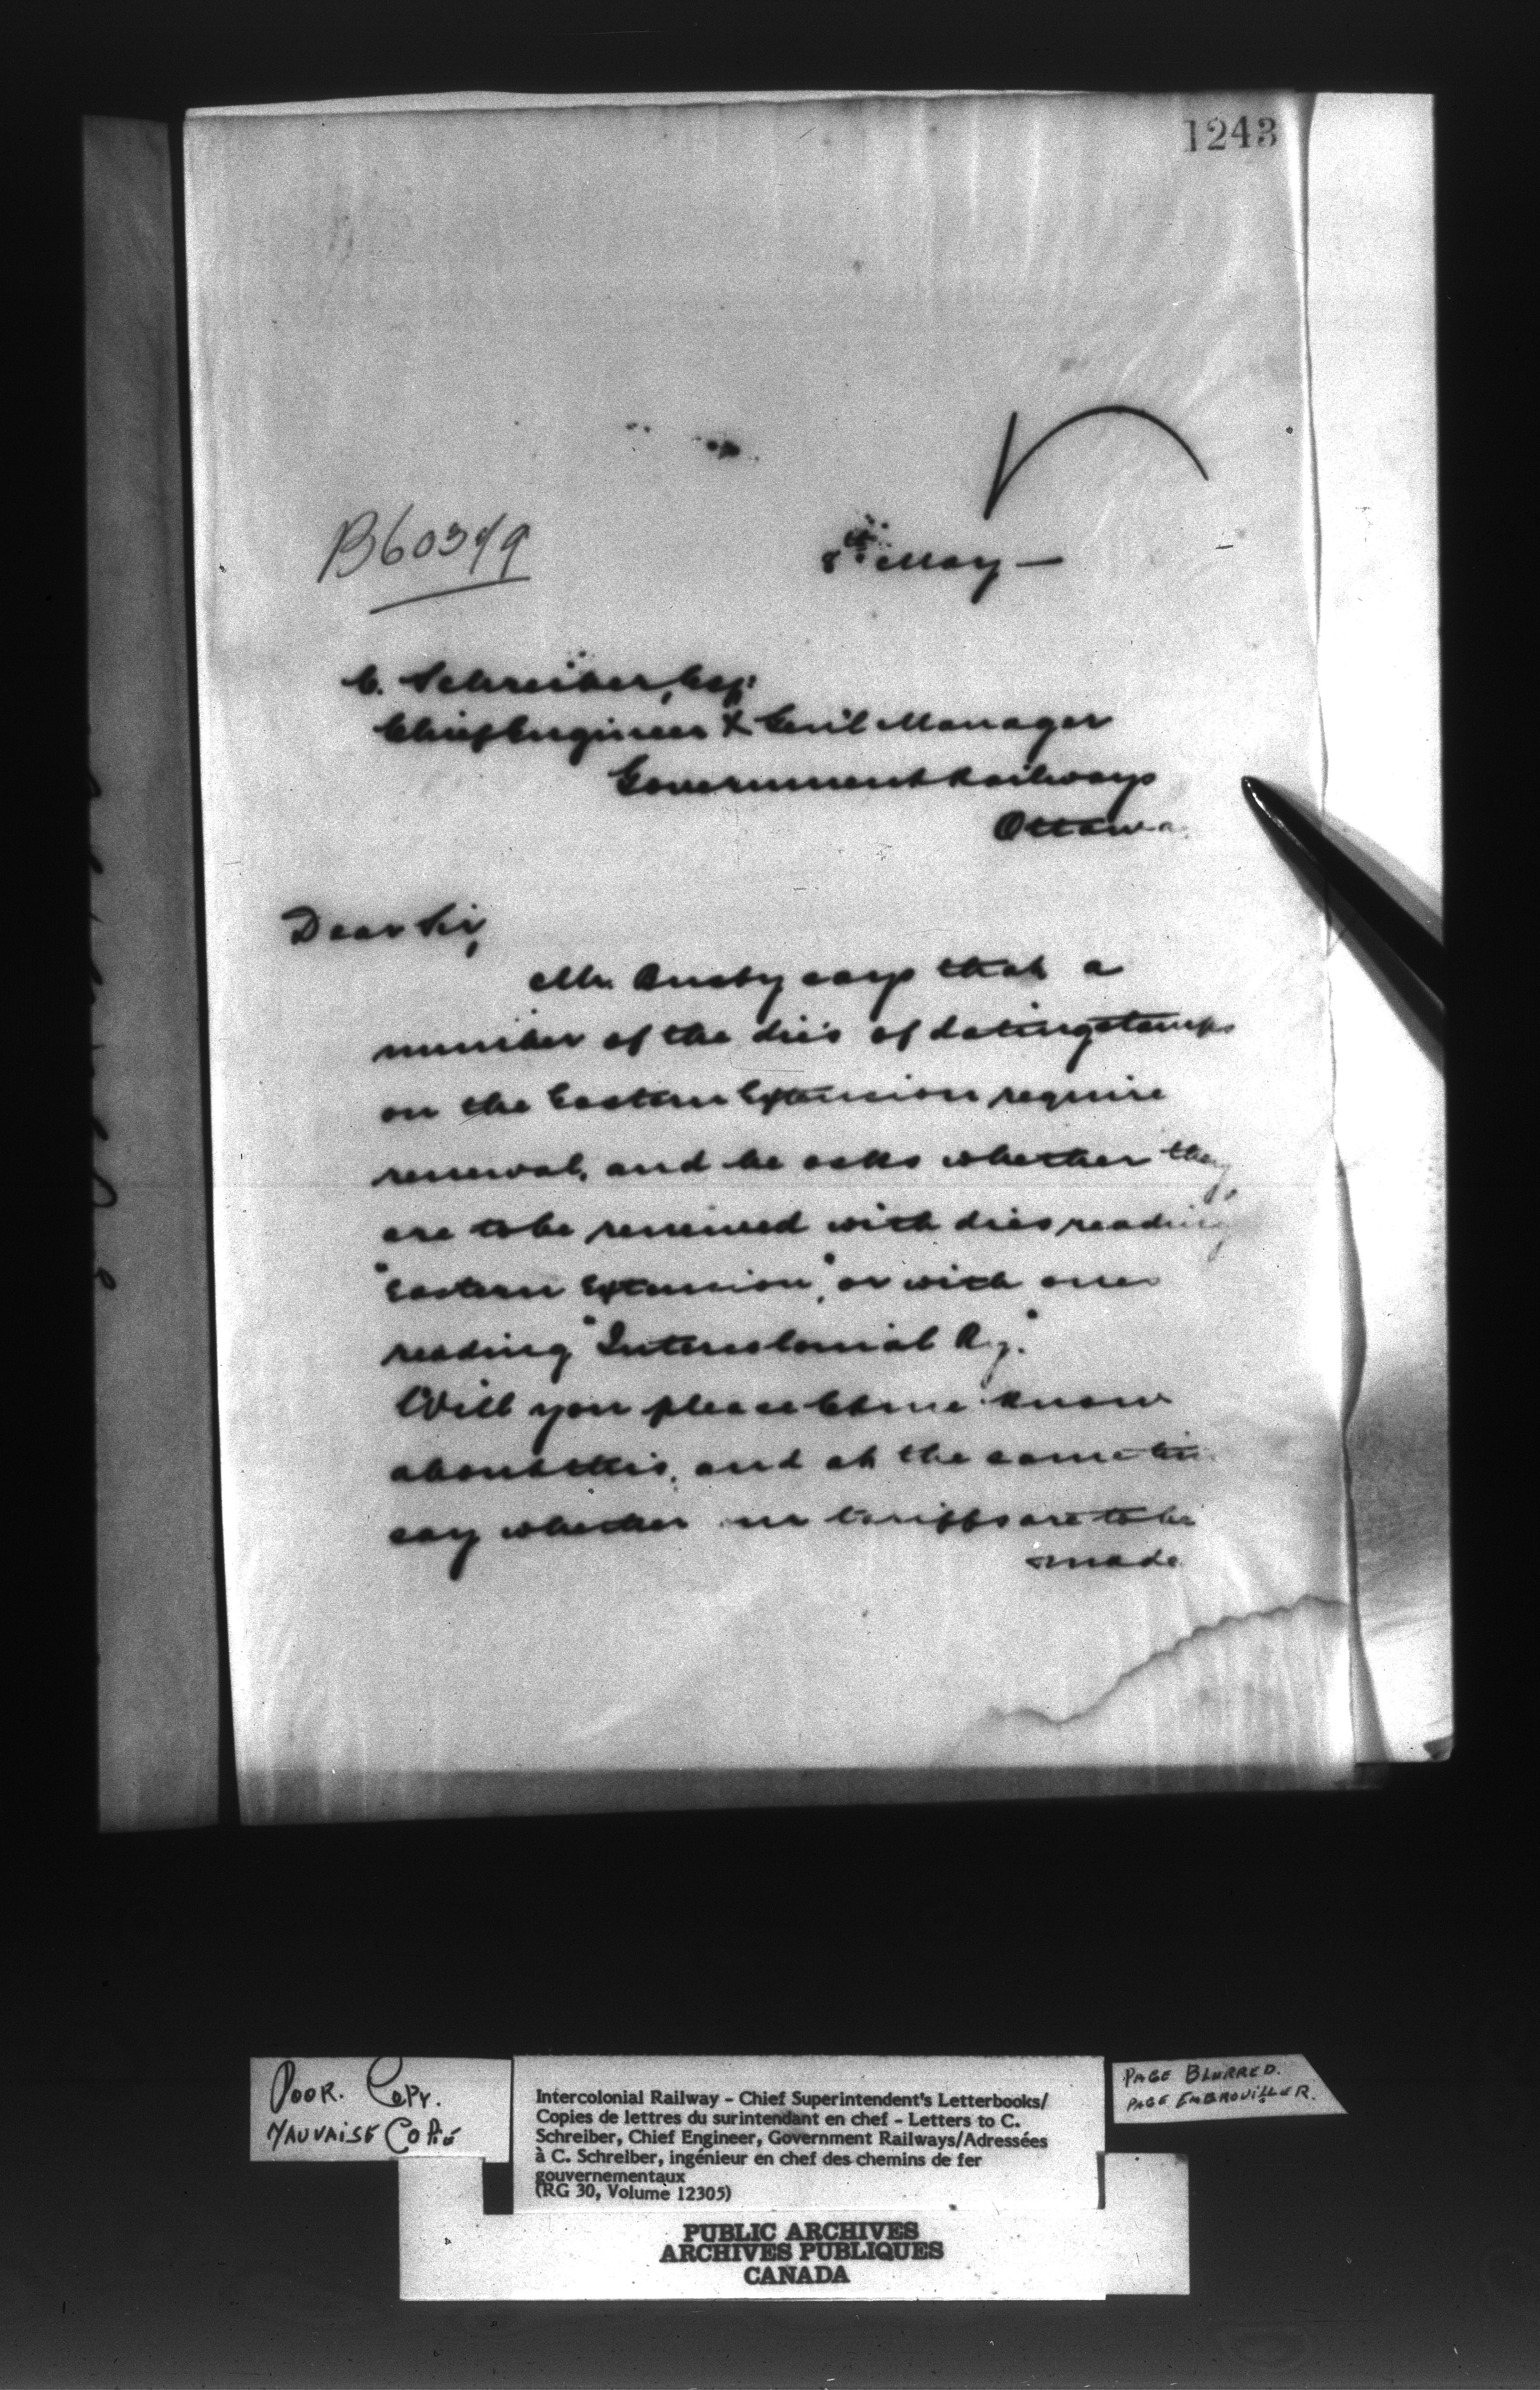 1243
B60349
8th May —
C. Schreiber, Esq:
Chief Engineer & Gen'l Manager
Government Railways
Ottawa
Dear Sir,
Mr. Busby says that a
number of the dies of dating stamps
on the Eastern Extension require
renewal, and he asks whether they
are to be renewed with dies reading
"Eastern Extension", or with ones
reading "Intercolonial Ry."
Will you please let me know
about this, and at the same
say whether tariffs are to be
made
POOR. COPY.
MAUVAISE COPIE
Intercolonial Railway – Chief Superintendent's Letterbooks/
Copies de lettres du surintendant en chef – Letters to C.
Schreiber, Chief Engineer, Government Railways/Adressées
à C. Schreiber, ingénieur en chef des chemins de fer
gouvernementaux
(RG 30, Volume 12305)
PAGE BLURRED.
PAGE EMBROUILLER.
PUBLIC ARCHIVES
ARCHIVES PUBLIQUES
CANADA